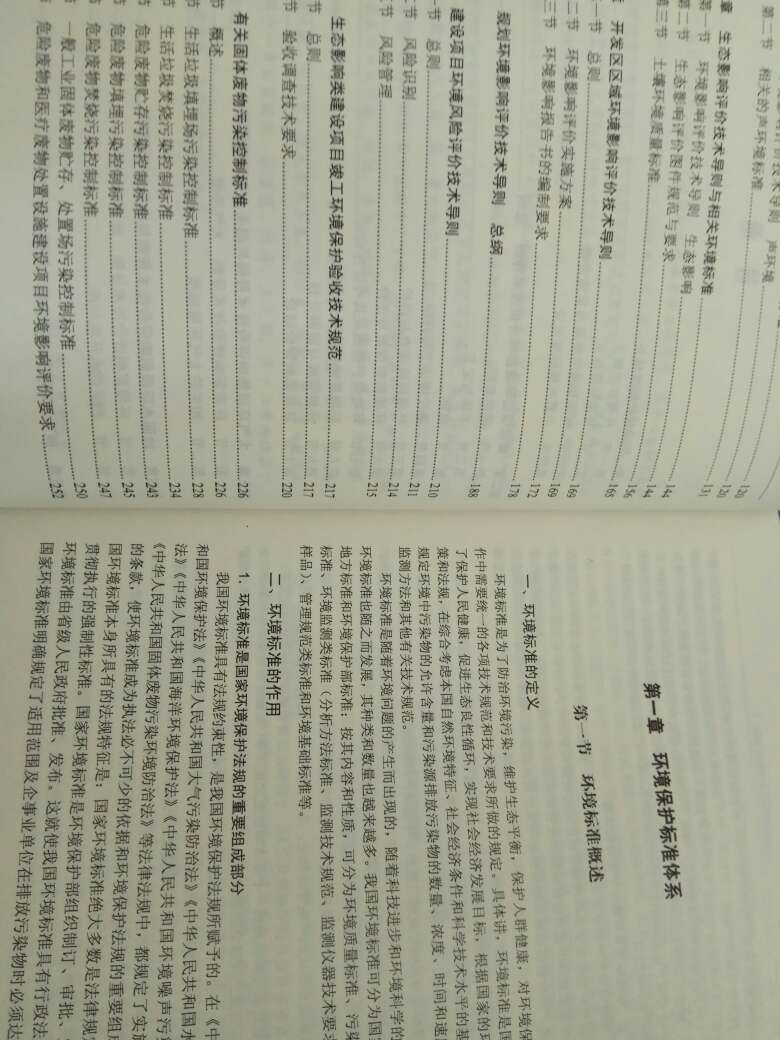 第二节 相关的声环境标准……120
章 生态影响评价技术导则与相关环境标准……120
第一节 环境影响评价技术导则 生态影响……131
第二节 生态影响评价图件规范与要求……144
第三节 土壤环境质量标准……144
……156
章 开发区区域环境影响评价技术导则……168
一节 总则……169
二节 环境影响评价实施方案……169
三节 环境影响报告书的编制要求……172
……178
规划环境影响评价技术导则 总纲……188
建设项目环境风险评价技术导则……210
一节 总则……211
节 风险识别……214
节 风险管理……215
生态影响类建设项目竣工环境保护验收技术规范……217
节 总则……217
节 验收调查技术要求……220
有关固体废物污染控制标准……226
节 概述……226
节 生活垃圾填埋场污染控制标准……228
节 生活垃圾焚烧污染控制标准……234
节 危险废物贮存污染控制标准……243
节 危险废物填埋污染控制标准……245
节 危险废物焚烧污染控制标准……247
节 一般工业固体废物贮存、处置场污染控制标准……250
节 危险废物和医疗废物处置设施建设项目环境影响评价要求……252
第一章 环境保护标准体系
第一节 环境标准概述
一、环境标准的定义
环境标准是为了防治环境污染，维护生态平衡，保护人群健康，对环境保
作中需要统一的各项技术规范和技术要求所做的规定。具体讲，环境标准是国
了保护人民健康，促进生态良性循环，实现社会经济发展目标，根据国家的环
策和法规，在综合考虑本国自然环境特征、社会经济条件和科学技术水平的基
规定环境中污染物的允许含量和污染源排放污染物的数量、浓度、时间和速
监测方法和其他有关技术规范。
环境标准是随着环境问题的产生而出现的，随着科技进步和环境科学的
环境标准也随之而发展，其种类和数量也越来越多。我国环境标准可分为国
地方标准和环境保护部标准；按其内容和性质，可分为环境质量标准、污染
标准、环境监测类标准（分析方法标准、监测技术规范、监测仪器技术要求
样品）、管理规范类标准和环境基础标准等。
二、环境标准的作用
1. 环境标准是国家环境保护法规的重要组成部分
我国环境标准具有法规约束性，是我国环境保护法规所赋予的。在《中
和国环境保护法》《中华人民共和国大气污染防治法》《中华人民共和国水
法》《中华人民共和国海洋环境保护法》《中华人民共和国环境噪声污
《中华人民共和国固体废物污染环境防治法》等法律法规中，都规定了实
的条款，使环境标准成为执法必不可少的依据和环境保护法规的重要组
国环境标准本身所具有的法规特征是：国家环境标准绝大多数是法律规
贯彻执行的强制性标准。国家环境标准是环境保护部组织制订、审批、
环境标准由省级人民政府批准、发布。这就使我国环境标准具有行政法
国家环境标准明确规定了适用范围及企事业单位在排放污染物时必须达